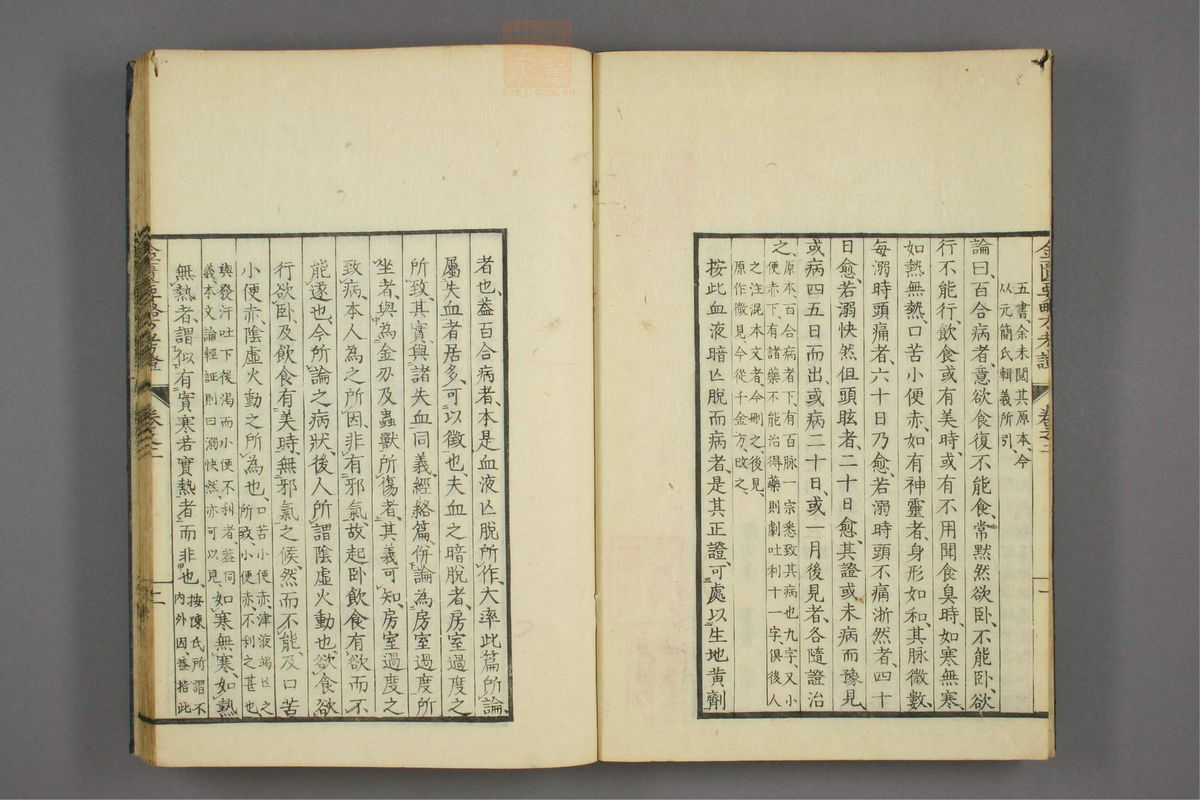 五書、余未閱其原本、今
以元簡氏輯義所引、
論曰、百合病者、意欲食、復不能食、常默然欲臥、不能臥、欲
行不能行、飲食或有美時、或有不用聞食臭時、如寒無寒、
如熱無熱、口苦小便赤、如有神靈者、身形如和、其脉微數、
每溺時頭痛者、六十日乃愈、若溺時頭不痛淅然者、四十
日愈、若溺快然但頭眩者、二十日愈、其證或未病而豫見、
或病四五日而出、或病二十日、或一月後見者、各隨證治
之、原本、百合病者下、有百脉一宗悉致其病也九字、又小
便赤下、有諸藥不能治得藥則劇吐利十一字、俱後人
之注混本文者、今刪之、後見、
原作微見、今從千金方、改之、
按此血液暗亡脫而病者、是其正證、可處以生地黄劑
金匱要略方考證
卷之二
者也、蓋百合病者、本是血液亡脫所作、大率此篇所論、
屬失血者居多、可以徵也、夫血之暗脫者、房室過度之
所致、其實與諸失血同義、經絡篇、併論為房室過度所
坐者、與為金刅及蟲獸所傷者、其義可知、房室過度之
致病、本人為之所因、非有邪氣、故起卧飲食有欲而不
能遂也、今所論之病狀、後人所謂陰虛火動也、欲食欲
行欲卧、及飲食有美時、無邪氣之候、然而不能及口苦
小便赤、陰虛火動之所為也、口苦小便赤、津液竭亡之
所致、小便赤、不利之甚也、
與發汗吐下後渴而小便不利者、蓋同
義、本文論輕証、則曰溺快然、亦可以見、如寒無寒、如熱
無熱者、謂似有實寒若實熱者而非也、按陳氏所謂不
內外因、蓋指此
金匱要略方考證
卷之二